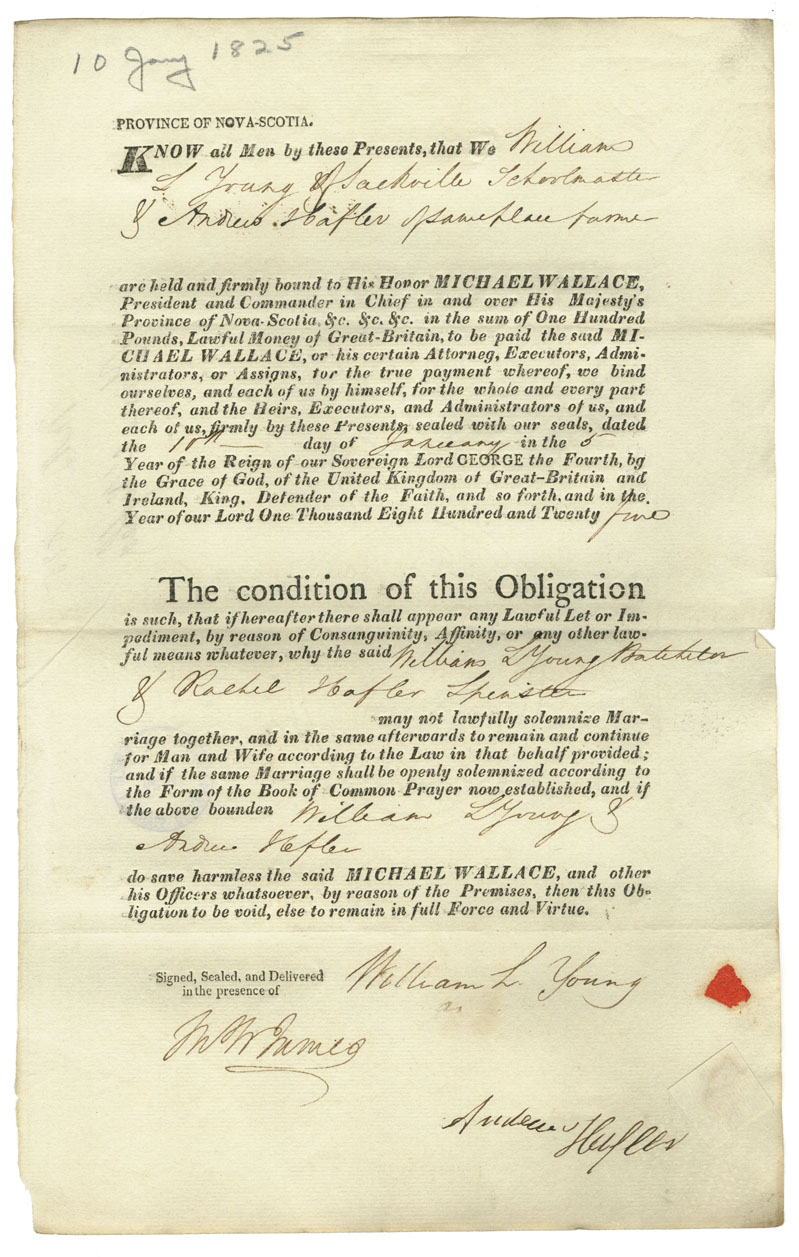 10 Jany 1825
PROVINCE OF NOVA-SCOTIA.
KNOW all Men by these Presents, that We William
L Young of Sackville Schoolmaster
& Andrew Hafler of same place farmer
are held and firmly bound to His Honor MICHAEL WALLACE,
President and Commander in Chief in and over His Majesty's
Province of Nova-Scotia, &c. &c. &c. in the sum of One Hundred
Pounds, Lawful Money of Great-Britain, to be paid the said MI-
CHAEL WALLACE, or his certain Attorney, Executors, Admi-
nistrators, or Assigns, for the true payment whereof, we bind
ourselves, and each of us by himself, for the whole and every part
thereof, and the Heirs, Executors, and Administrators of us, and
each of us, firmly by these Presents, sealed with our seals, dated
the 10th day of January in the 5
Year of the Reign of our Sovereign Lord GEORGE the Fourth, by
the Grace of God, of the United Kingdom of Great-Britain and
Ireland, King, Defender of the Faith, and so forth, and in the
Year of our Lord One Thousand Eight Hundred and Twenty five
The condition of this Obligation
is such, that if hereafter there shall appear any Lawful Let or Im-
pediment, by reason of Consanguinity, Affinity, or any other law-
ful means whatever, why the said William L Young Batchelor
& Rachel Hafler Spinster
may not lawfully solemnize Mar-
riage together, and in the same afterwards to remain and continue
for Man and Wife according to the Law in that behalf provided;
and if the same Marriage shall be openly solemnized according to
the Form of the Book of Common Prayer now established, and if
the above bounden William L Young &
Andrew Hefler
do save harmless the said MICHAEL WALLACE, and other
his Officers whatsoever, by reason of the Premises, then this Ob-
ligation to be void, else to remain in full Force and Virtue.
Signed, Sealed, and Delivered
in the presence of
William L. Young
James
Andrew Hefler